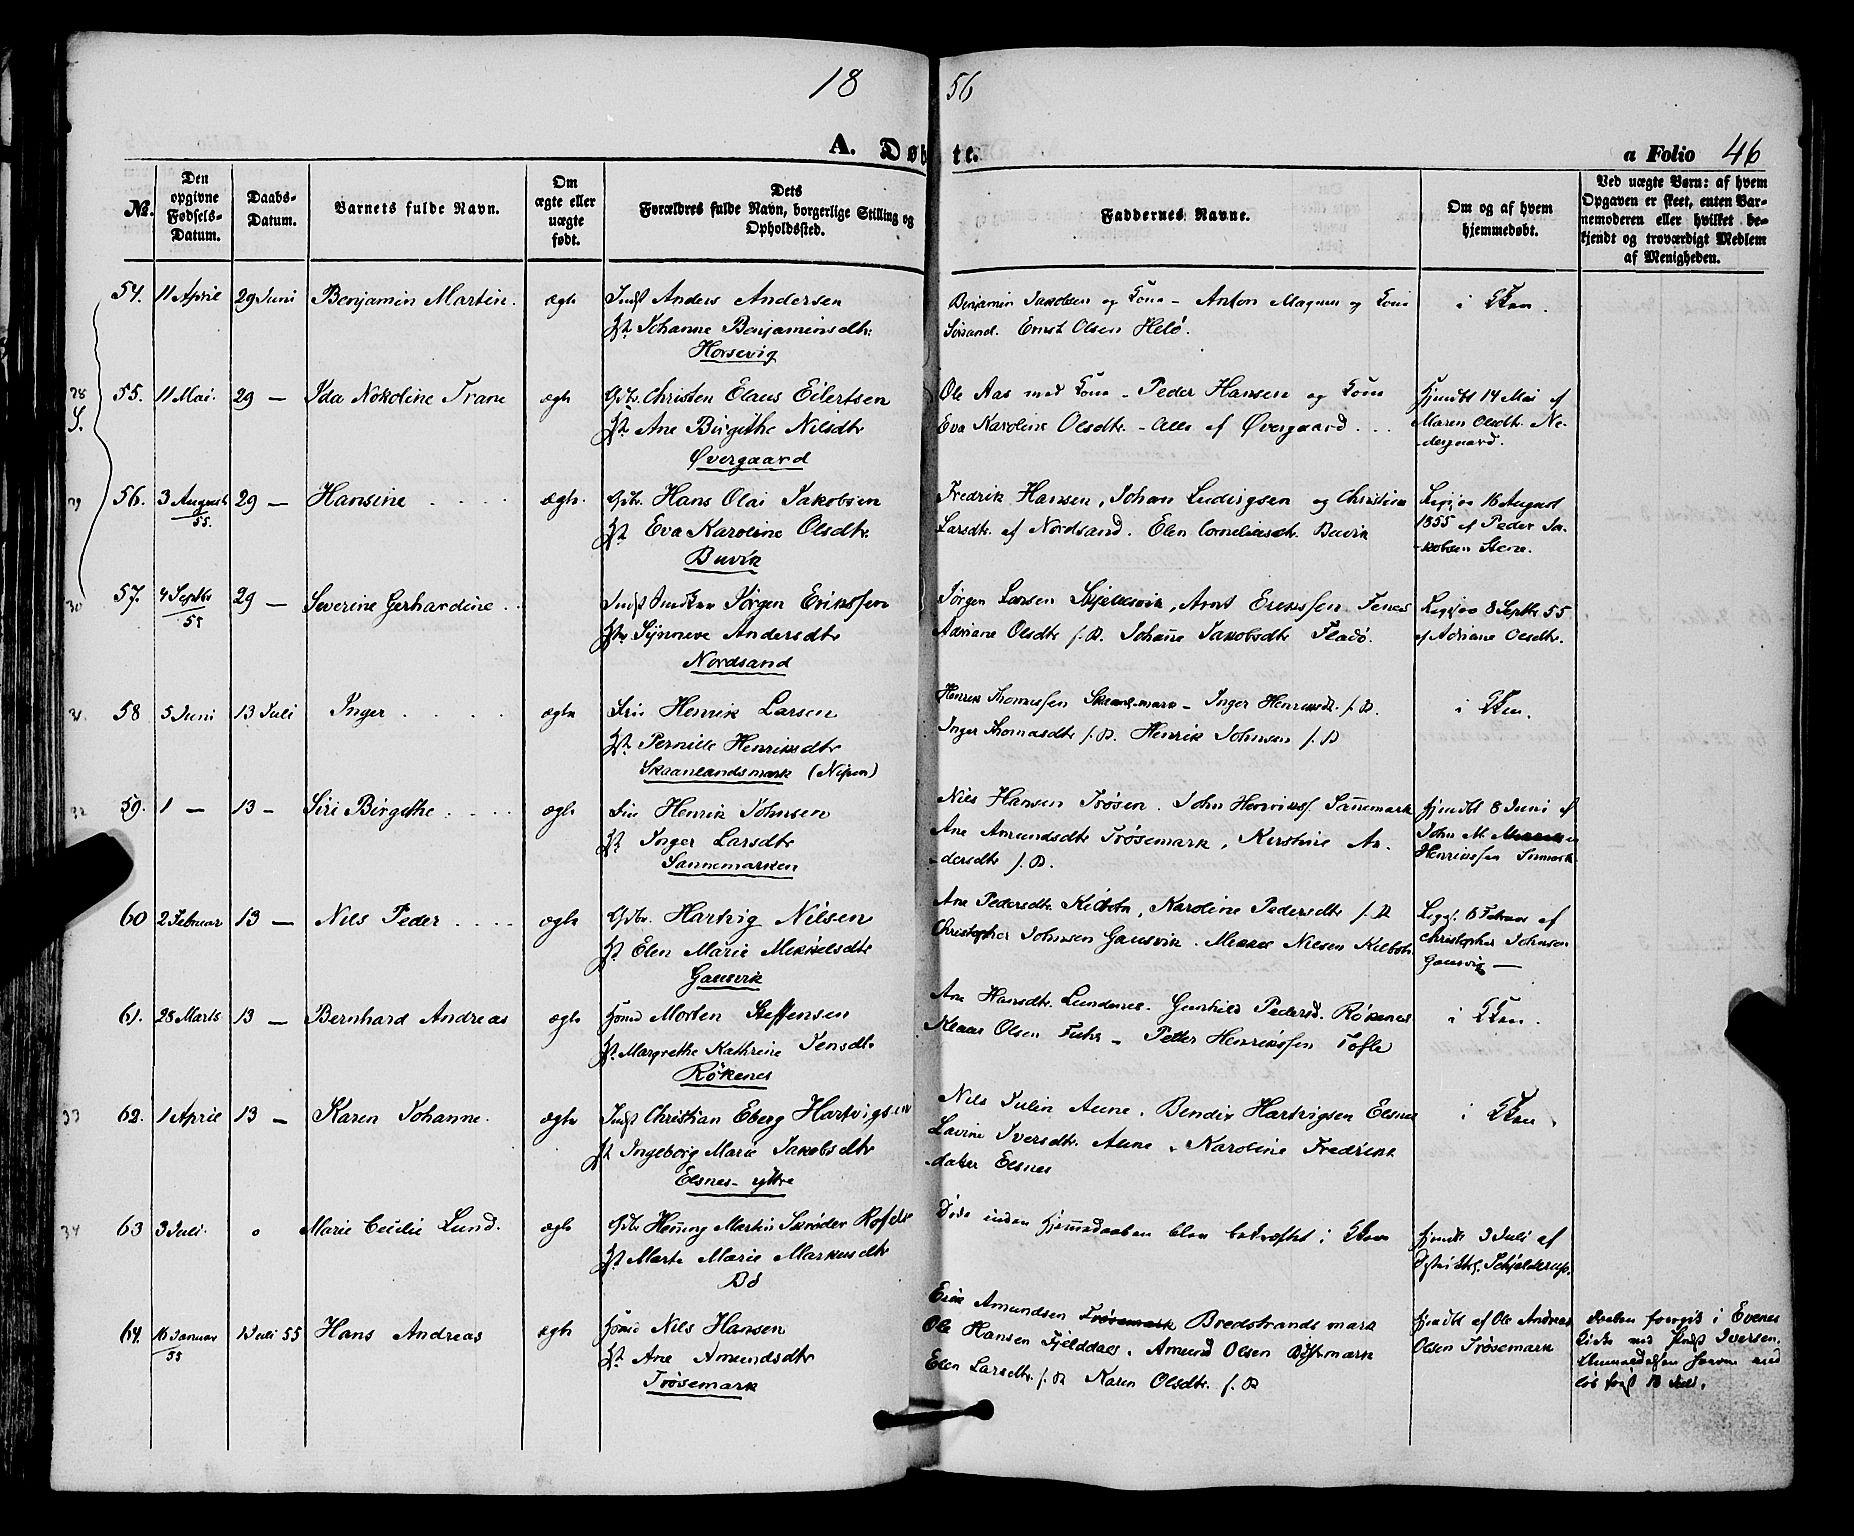 1856
A. Døbte.
a Folio 46
No.
Den opgivne Fødsels-Datum.
Daabs-Datum.
Barnets fulde Navn.
Om ægte eller uægte født.
Dets Forældres fulde Navn, borgerlige Stilling og Opholdssted.
Faddernes Navne.
Om og af hvem hjemmedøbt.
Ved uægte Børn: af hvem Opgaven er skeet, enten Barnemoderen eller hvilket bekjendt og troværdigt Medlem af Menigheden.
54. 11 April 29 Juni Benjamin Martin. ægte Indst Anders Andersen
Hst Johanne Benjaminsdtr
Horsevig
Benjamin Jakobsen og Kone – Anton Magnus og Kone
Sørsand. Ernst Olsen Helø.
i Kken.
28 55. 11 Mai. 29 — Ida Nokoline Trane ægte Gdbr. Christen Elaus Eilertsen
Hst Ane Birgithe Nilsdtr
Øvergaard
Ole Aas med Kone – Peder Hansen og Kone
Eva Karoline Olsdtr. – Alle af Øvergaard...
Hjmdbt 14 Mai af
Maren Olsdtr. Ne-
dergaard.
29 56. 3 August 55. 29 — Hansine ægte. Gdbr. Hans Olai Jakobsen
Hst Eva Karoline Olsdtr.
Buvik
Fredrik Hansen, Johan Ludvigsen og Christine
Larsdtr. af Nordsand. Elen Corneliusdtr. Buvik
16 August
1855 af Peder Ja-
-kobsen Stene.
30 57. 4 Septbr 55 29 — Severine Gerhardine Jørgen Erikssen
Hst Synneve Andersdtr
Nordsand
Jørgen Larsen, Arnt Erikssen Fenes
Adriane Olsdtr f. B. Johane Jakobsdtr Fladø.
8 Septbr 55
af Adriane Olsdtr.
31. 58 5 Juni 13 Juli Inger ægte Fris Henrik Larsen
Hst Pernille Henriksdtr
Skaanlandsmark (Nipen)
Henrik Thomassen – Inger Henriksdtr. f. B.
Inger Thomasdtr f. B. Henrik Johnsen f. B
i Kken.
32 59. 1 — 13 – Siri Birgithe ægte Fin Henrik Johnsen
Hst Inger Larsdtr
Sannemarken
Nils Hansen Trøsen. John Henrikss. Sannemark
Ane Amundsdtr Trøsemark, Kirstine An-
-dersdtr f. B.
Hjmdbt 8 Juni af
John M.
Henrikssen
60 2 Februar 13 — Nils Peder ægte Gdbr. Hartvig Nilsen
Hst Elen Marie Mikkelsdtr
Gausvik
Ane Pedersdtr Kilbotn, Karoline Pedersdtr f. B
Christopher Johnsen Gausvik. Mikkel Nilsen Kilbotn
6 Februar af
Christopher Johnsen
Gausvig —
61. 28 Marts 13 — Bernhard Andreas ægte Hsmd Morten Steffensen
Hst Margrethe Kathrine Jensdtr
Røkenes
Ane Hansdtr. Lundenes. Gunhild Pedersd. Røkenes
Klaus Olsen – Petter Henrikssen Tofte
i Kken.
33 62. 1 April 13 — Karen Johanne. ægte Indst Christian Eberg Hartvigsen
Hst Ingeborg Marie Jakobsdtr
Elsnes – yttre
Nils Julin Aune. Bendix Hartvigsen Elsnes
Lavine Iversdtr. Aune. Karoline Fredriks-
-datter Elsnes
i Kken.
34 63 3 Juli. Marie Cecilie Lund. ægte Gdbr Henning Martin Skrøder
Hst Marte Marie Markusdtr
Bø
Døde inden Hjemmedaaben blev bekræftet i Kken
Hjmdbt 3 Juli af
Distriktslg. Schjelderup.
64. 16 Januar 55 1 Juli 55 Hans Andreas ægte Hsmd Nils Hansen
Hst Ane Amundsdtr
Trøsemark
Erik Amundsen Trøsemark Bredstrandsmark
Ole Hansen Fjelddal. Amund Olsen
Elen Larsdtr. f. B Karen Olsdtr. f. B
Hjmdbt af Ole Andreas
Olsen Trøsemark
Daaben foregik i Evenes
Kirke ved Iversen.